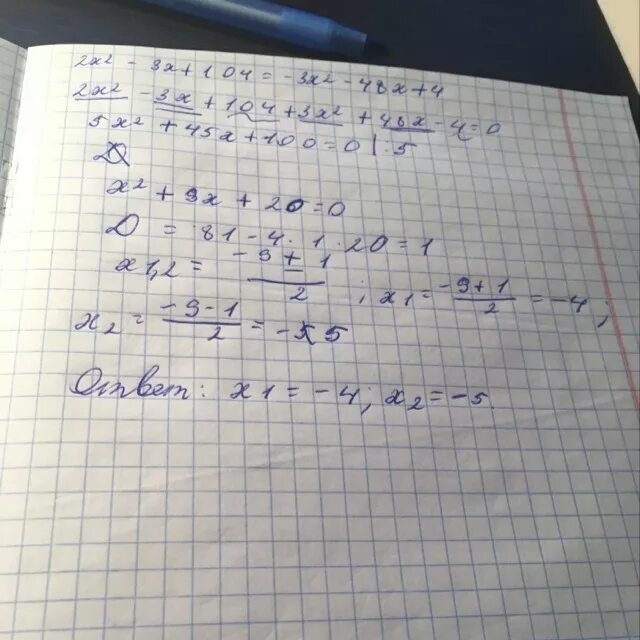 2x² - 3x + 104 = -3x² - 48x + 4
2x² - 3x + 104 + 3x² + 48x - 4 = 0
5x² + 45x + 100 = 0 | : 5
D
x² + 9x + 20 = 0
D = 81 - 4 · 1 · 20 = 1
x1,2 = (-9 ± 1)/2 ; x1 = (-9 + 1)/2 = -4;
x2 = (-9 - 1)/2 = -5
Ответ: x1 = -4; x2 = -5.